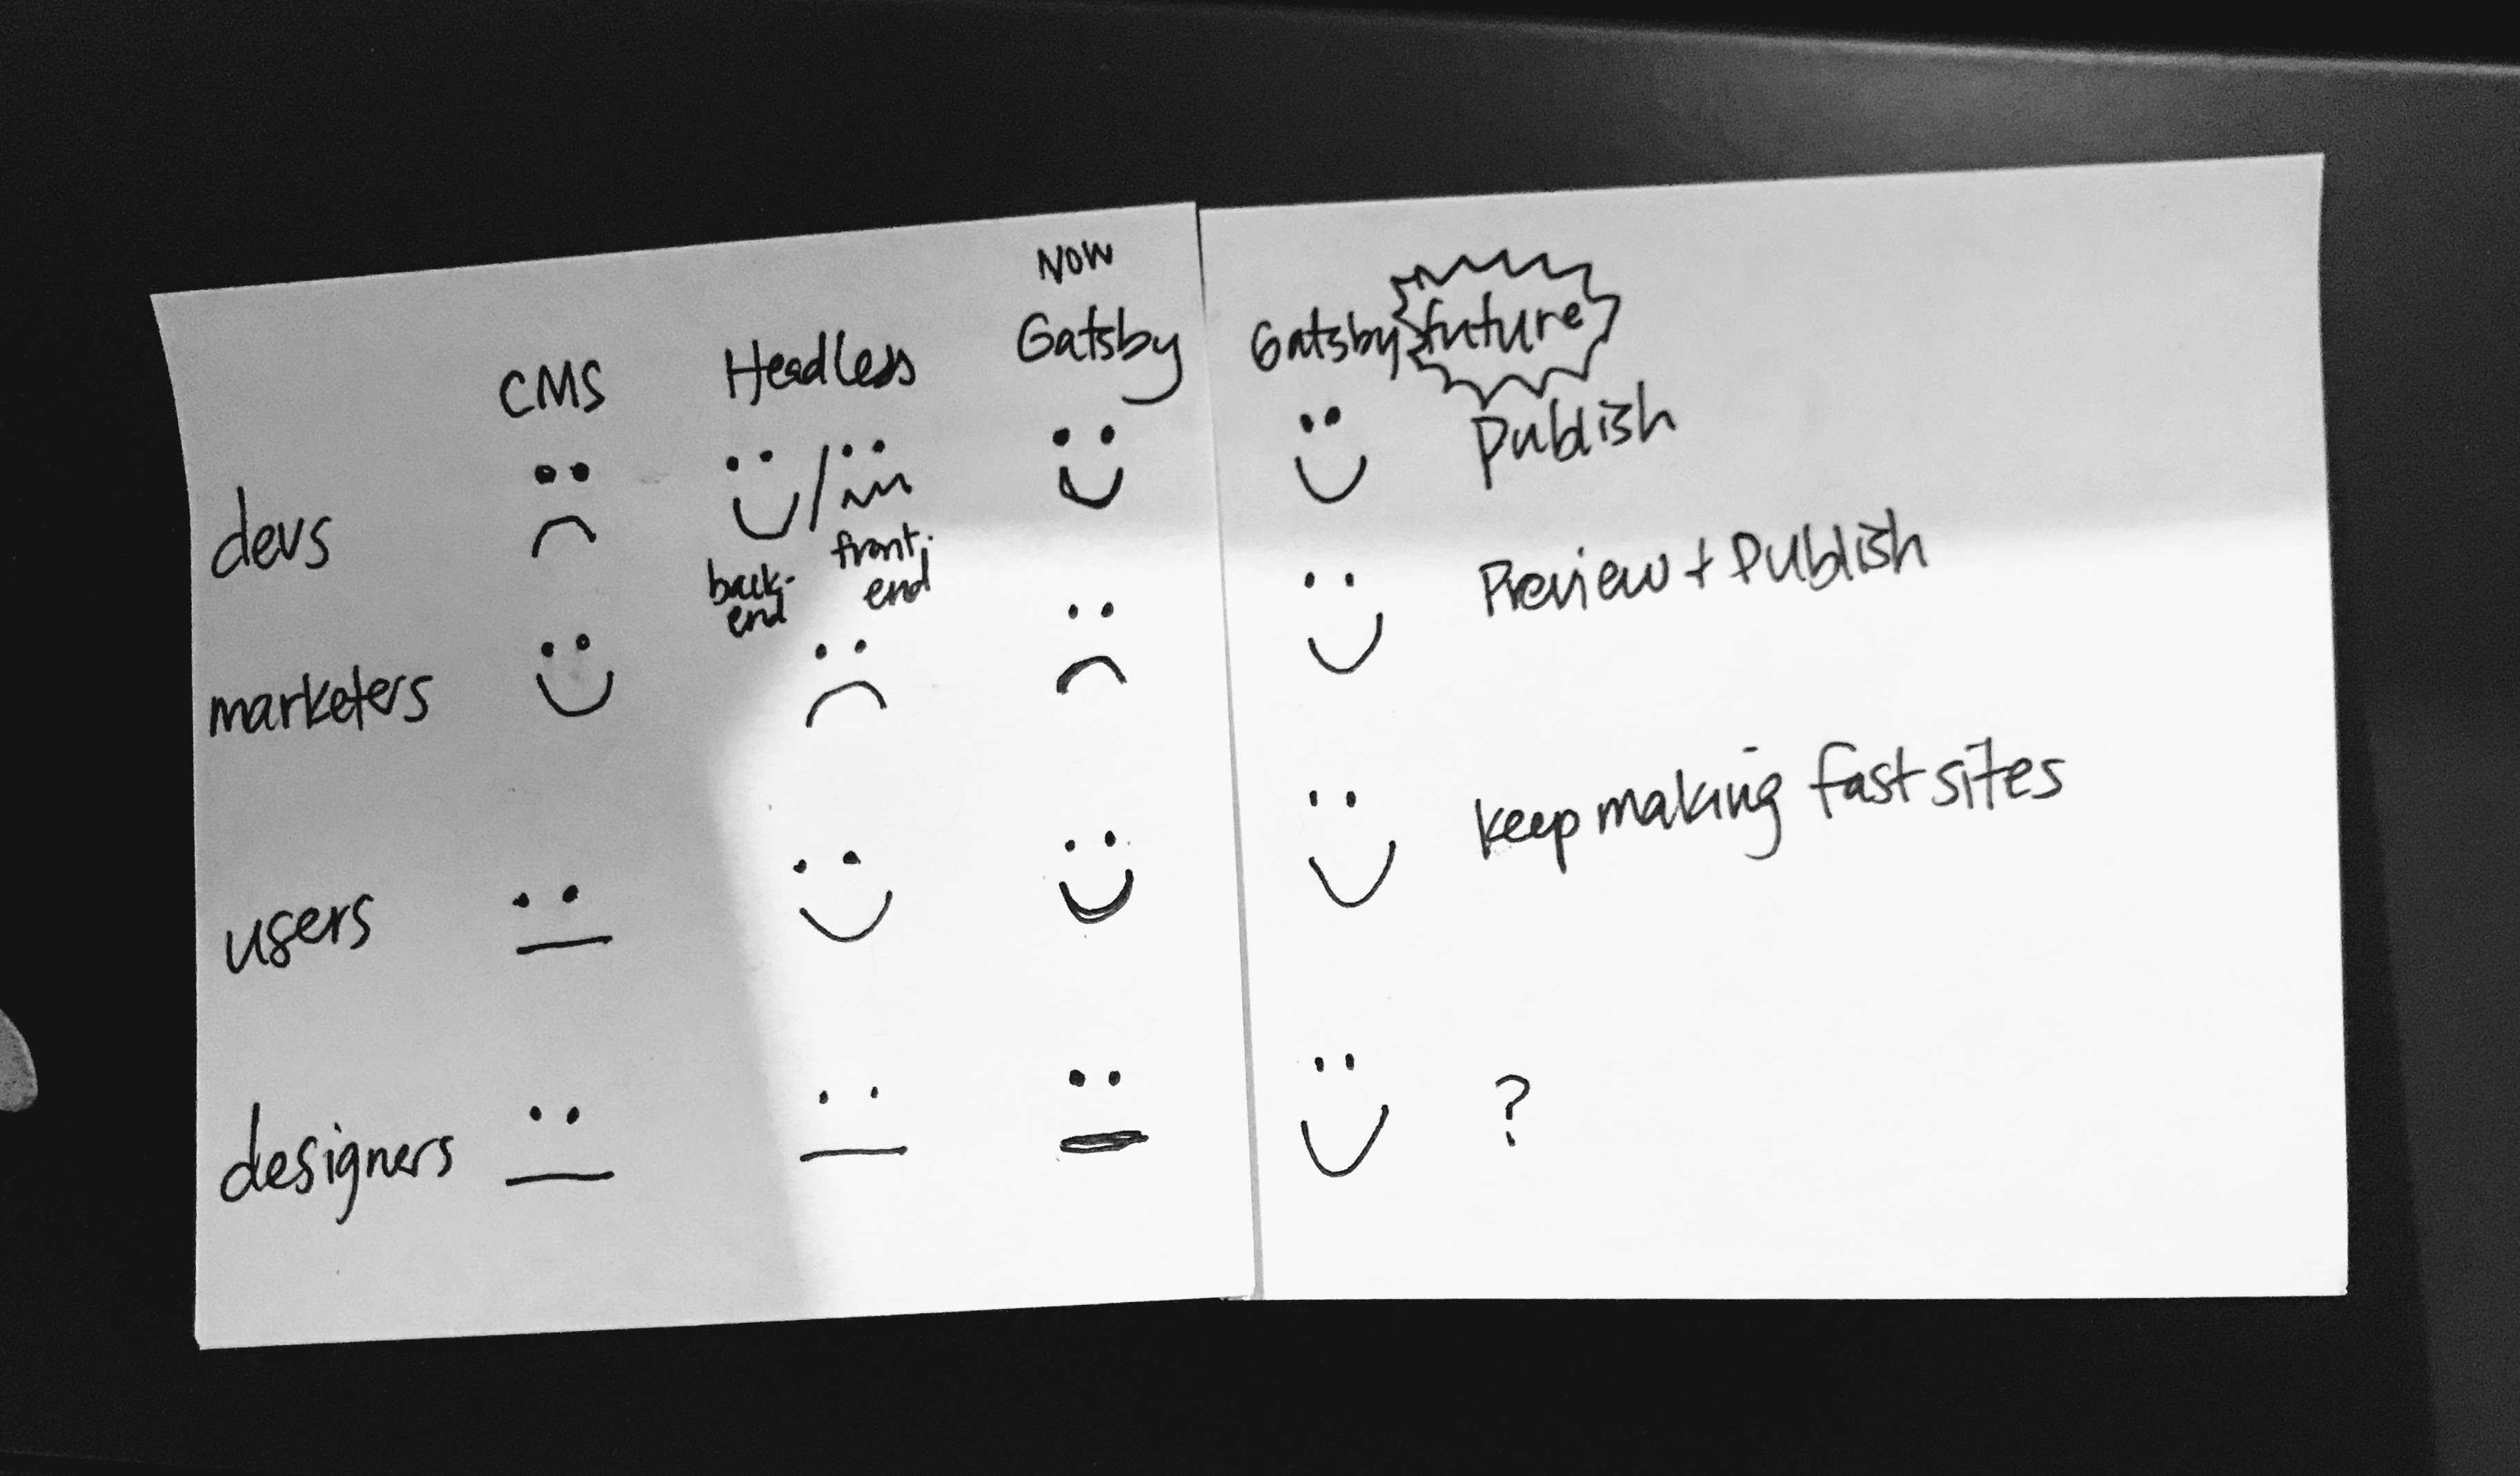 NOW
CMS Headless Gatsby Gatsby future
devs publish
back-
end
front-
end
marketers Preview + Publish
users keep making fast sites
designers ?